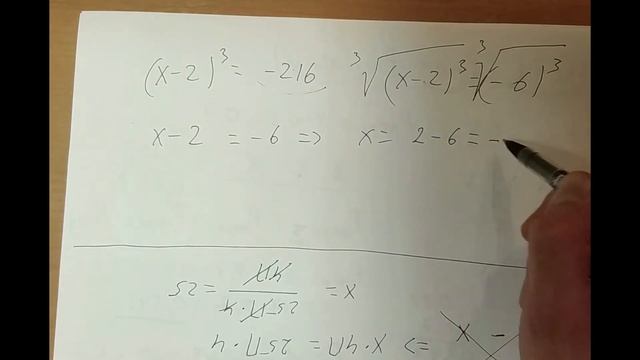 (x-2)³ = -216   ³√(x-2)³ = ³√(-6)³
x-2 = -6 => x = 2-6 = -
x = 25π·4 / 4π = 25
=> x·4π = 25π·4
x -